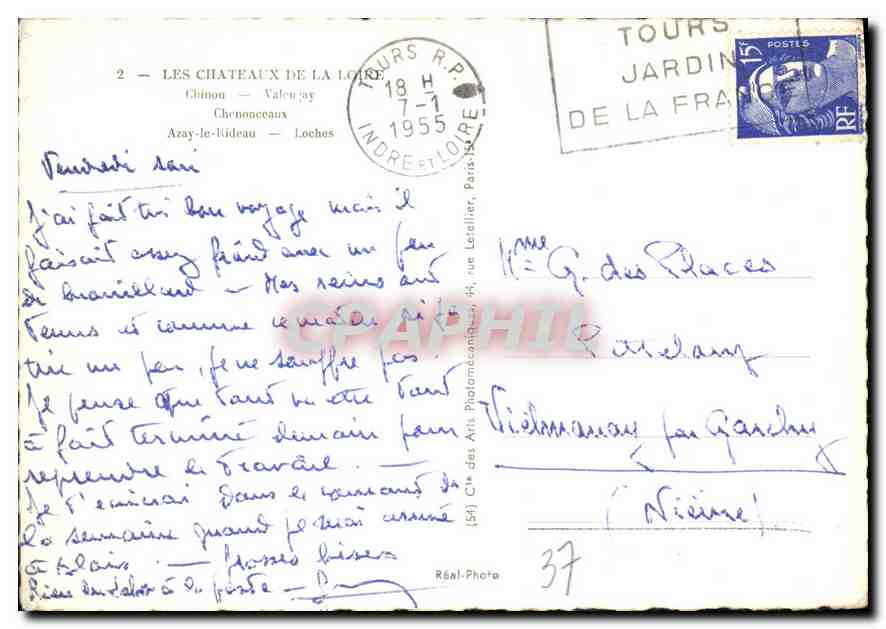 2 — LES CHATEAUX DE LA LOIRE
Chinon — Valençay
Chenonceaux
Azay-le-Rideau — Loches
TOURS R.P.
18 H
7-1
1955
INDRE ET LOIRE
TOURS
JARDIN
DE LA FRANCE
15F POSTES
RF
Vendredi soir
J'ai fait très bon voyage mais il
faisait assez froid avec un peu
de brouillard — Mes reins ont
tenus et comme ce matin si je
tire un peu, je ne souffre pas.
Je pense que tout va être tout
à fait terminé demain pour
reprendre le travail. —
Je t'écrirai dans le courant de
la semaine quand je serai
à Blois — Grosses bises
Rien à la poste —
Mme G. des Places
Vielmanay par Garchy
(Nièvre)
(54) Cie des Arts Photomécaniques, 44, rue Letellier, Paris-15e
Réal-Photo
37
CPAPHIL